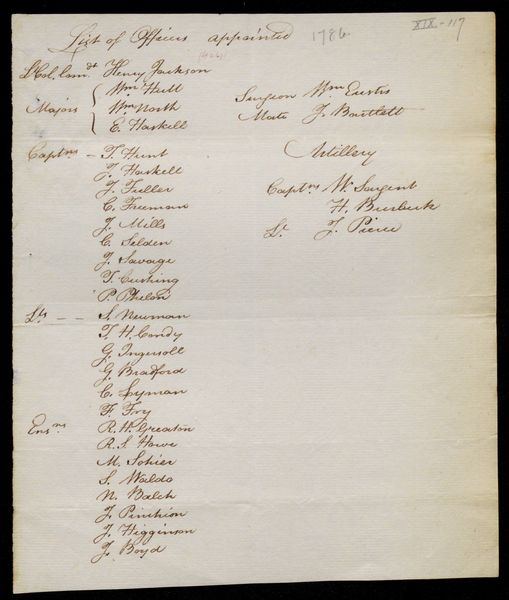 List of Officers appointed 1786
XIX-117
Lt Col. Com.dt Henry Jackson
Majors Wm Hull
Wm North
E. Haskell
Captns - T. Hunt
J. Haskell
J. Fuller
C. Freeman
J. Mills
C. Selden
J. Savage
T. Cushing
P. Phelon
Lts - - S. Newman
T. H. Condy
G. Ingersoll
G. Bradford
C. Lyman
F. Fry
Ensns R. H. Greaton
R. S. Howe
M. Sohier
S. Waldo
N. Balch
J. Pinchion
J. Higginson
J. Boyd
Surgeon Wm Eustis
Mate J. Bartlett
Artillery
Captns W. Sargent
H. Burbeck
Lt. J. Pierce